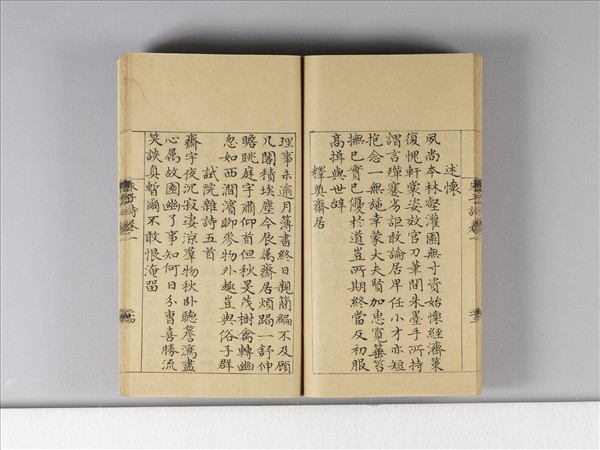 述懷
夙尚本林壑灌園無寸資始懷經濟策
復愧軒裳姿效官刀筆間朱墨手所持
謂言殫蹇劣詎敢論居卑任小才亦短
抱念一無施幸蒙大夫賢加惠寬箠笞
撫己實已優於道豈所期終當反初服
高揖與世辭
釋奠齋居
理事未逾月簿書終日親簡編不及顧
几閣積埃塵今辰屬齋居煩跼一舒伸
瞻眺庭宇肅仰首但秋旻茂樹禽轉幽
忽如西澗濱聊參物外趣豈與俗子群
試院雜詩五首
齋宇夜沉寂淒涼羣物秋臥聽簷瀉盡
心屬故園幽了事知何日分曹喜勝流
笑談真暫爾不敢恨淹留